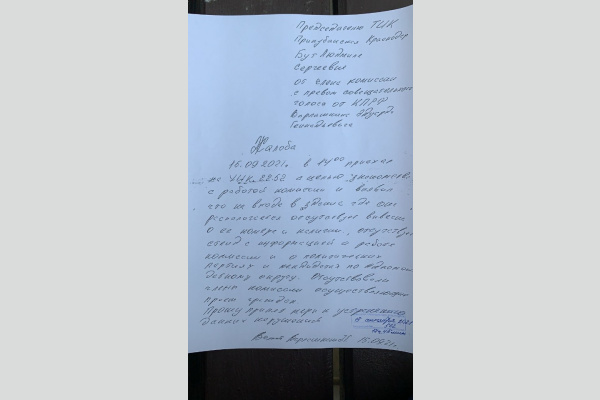 Председателю ТИК
Прикубанская Краснодар
Бут Людмиле
Сергеевне
от члена комиссии
с правом совещательного
голоса от КПРФ
Геннадьевича
Жалоба
16.09.2021г. в 14 00 приехал
на УИК 22.52 с целью
с работой комиссии и выявил
что на входе в здание, где она
располагается отсутствует вывеска
о её номере и наличии, отсутствует
стенд с информацией о работе
комиссии и о политических
партиях и кандидатах по одноман
датному округу. Отсутствовали
члены комиссии осуществляющие
прием граждан.
Прошу принять меры к устранению
данных нарушений
16.09.21г.